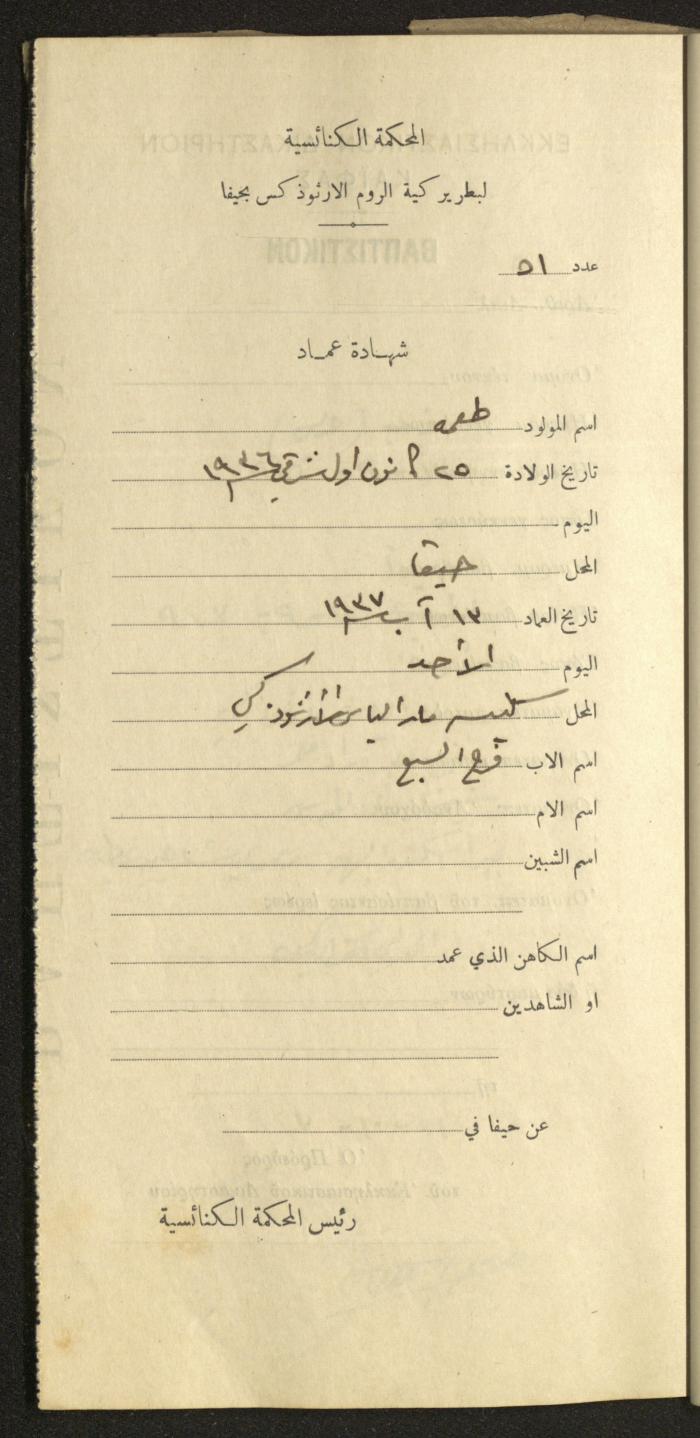 المحكمة الكنائسية
لبطريركية الروم الارثوذكس بحيفا
عدد ٥١
شهادة عماد
اسم المولود طعمه
تاريخ الولادة ٢٥ كانون اول شرقي سنة ١٩٣٦
اليوم
المحل حيفا
تاريخ العماد ١٣ آب سنة ١٩٣٧
اليوم الأحد
المحل مار الياس الارثوذكسي
اسم الاب فرح السبع
اسم الام
اسم الشبين
اسم الكاهن الذي عمد
او الشاهدين
عن حيفا في
رئيس المحكمة الكنائسية